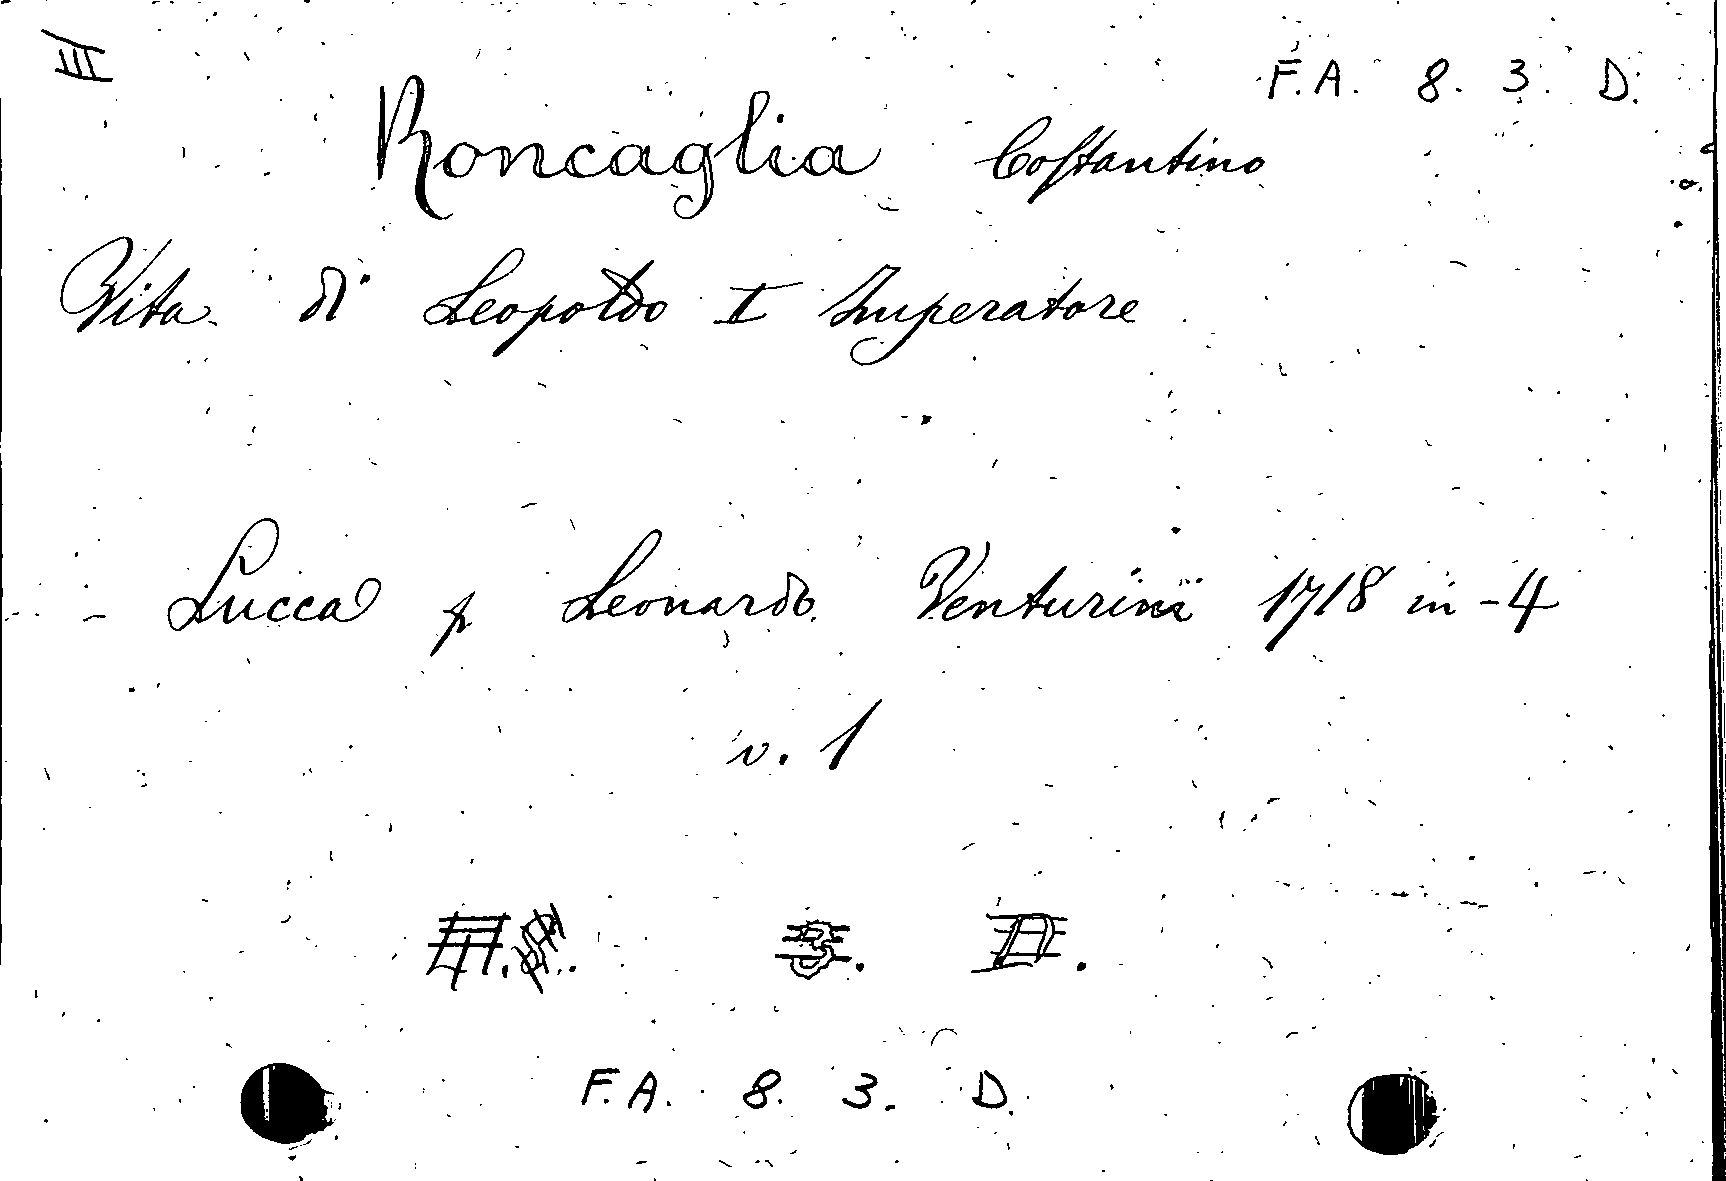 III
F.A. 8. 3. D.
Roncaglia Costantino
Vita di Leopoldo I Imperatore
- Lucca p Leonardo Venturini 1718 in-4
v. 1
F.A. 8. 3. D.